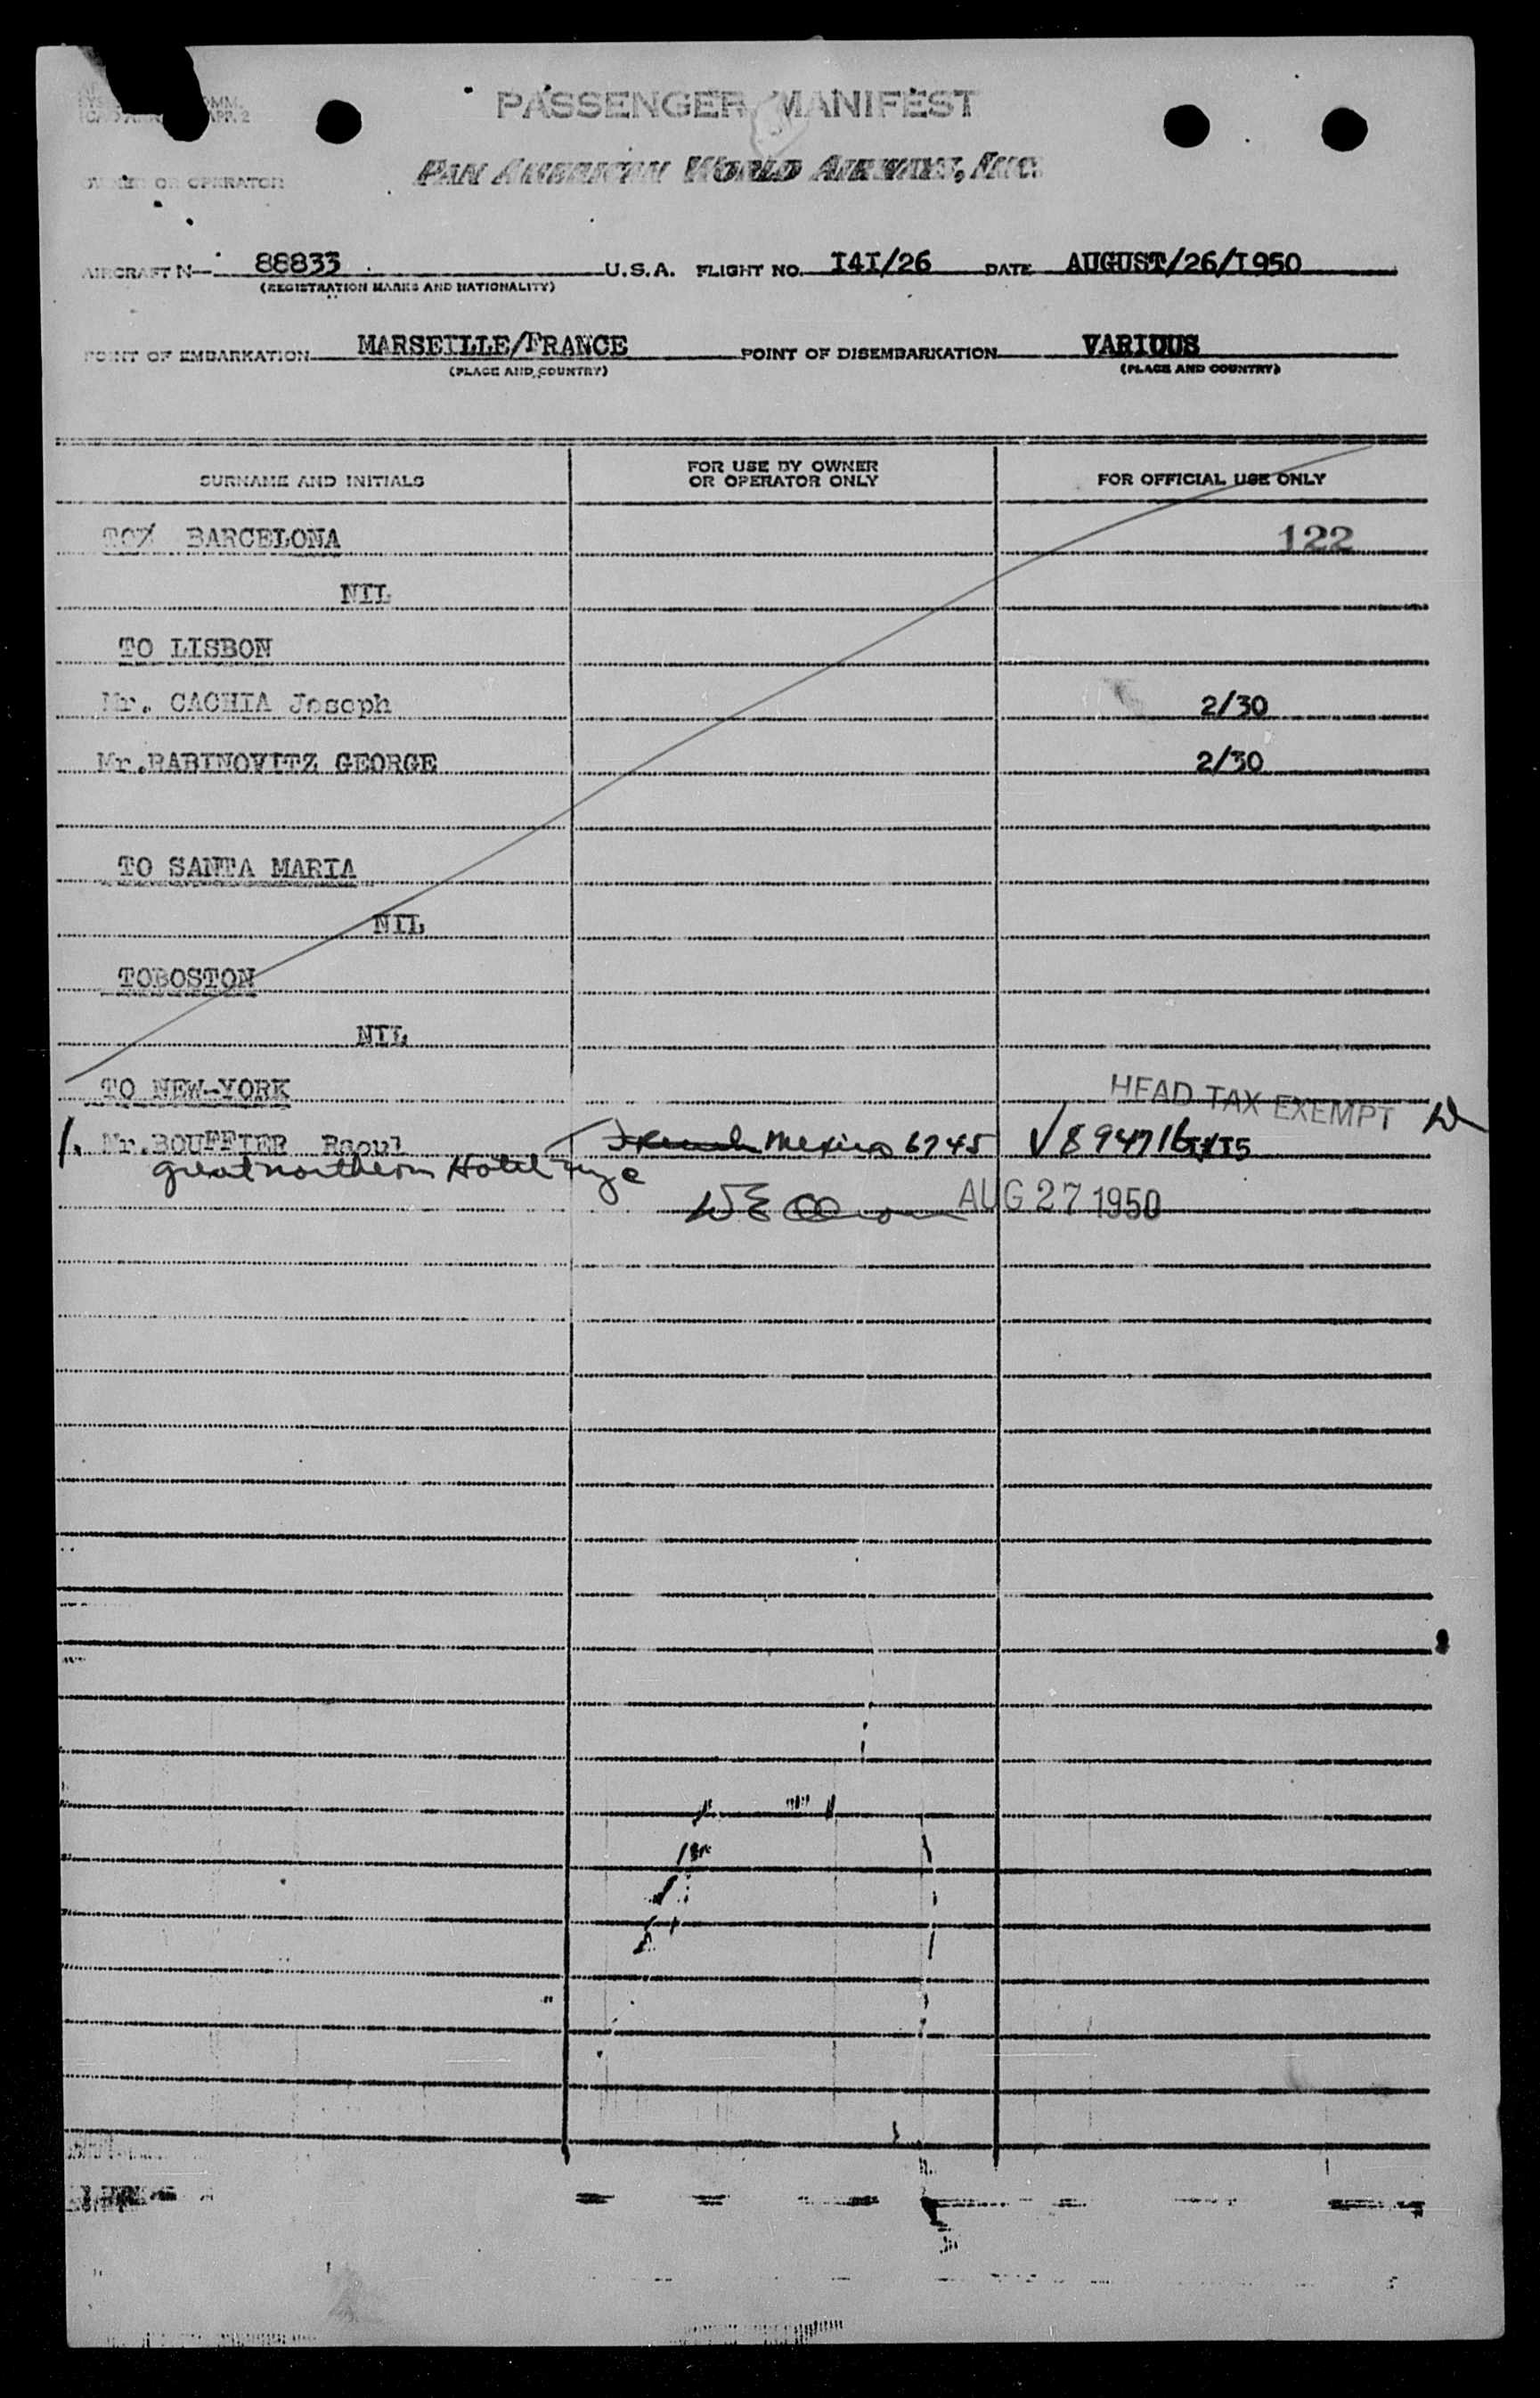 PASSENGER MANIFEST
OWNER OR OPERATOR PAN AMERICAN WORLD AIRWAYS, INC.
AIRCRAFT N— 88833 U.S.A. FLIGHT NO. I4I/26 DATE AUGUST/26/I950
(REGISTRATION MARKS AND NATIONALITY)
POINT OF EMBARKATION MARSEILLE/FRANCE POINT OF DISEMBARKATION VARIOUS
(PLACE AND COUNTRY) (PLACE AND COUNTRY)
SURNAME AND INITIALS FOR USE BY OWNER OR OPERATOR ONLY FOR OFFICIAL USE ONLY
TO% BARCELONA 122
NIL
TO LISBON
Mr. CACHIA Joseph 2/30
Mr.RABINOVITZ GEORGE 2/30
TO SANTA MARIA
NIL
TOBOSTON
NIL
TO NEW-YORK HEAD TAX EXEMPT
1. Mr.BOUFFIER Raoul French Mexico 6745 V894716
great northern Hotel nyc
AUG 27 1950